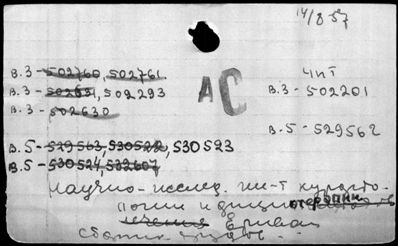 14/8 57
В.3 - 502760, 502761
В.3 - 502831, 502293
В.3 - 502630
АС
Чит
В.3 - 502201
В.5 - 529562
В.5 - 529563, 530522, 530523
В.5 - 530524, 532607
Научно-исслед. ин-т курорто-
логии и физиотерапии
лечения Ереван
Сборник трудов.